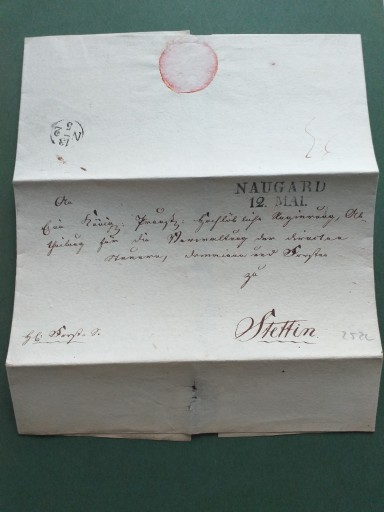 N
13
5
NAUGARD
12. MAI.
An
Eine Königl. Preuß. Hochlöbliche Regierung, Ab-
theilung für die Verwaltung der directen
Steuern, Domainen und Forsten
zu
Stettin
Forst S.